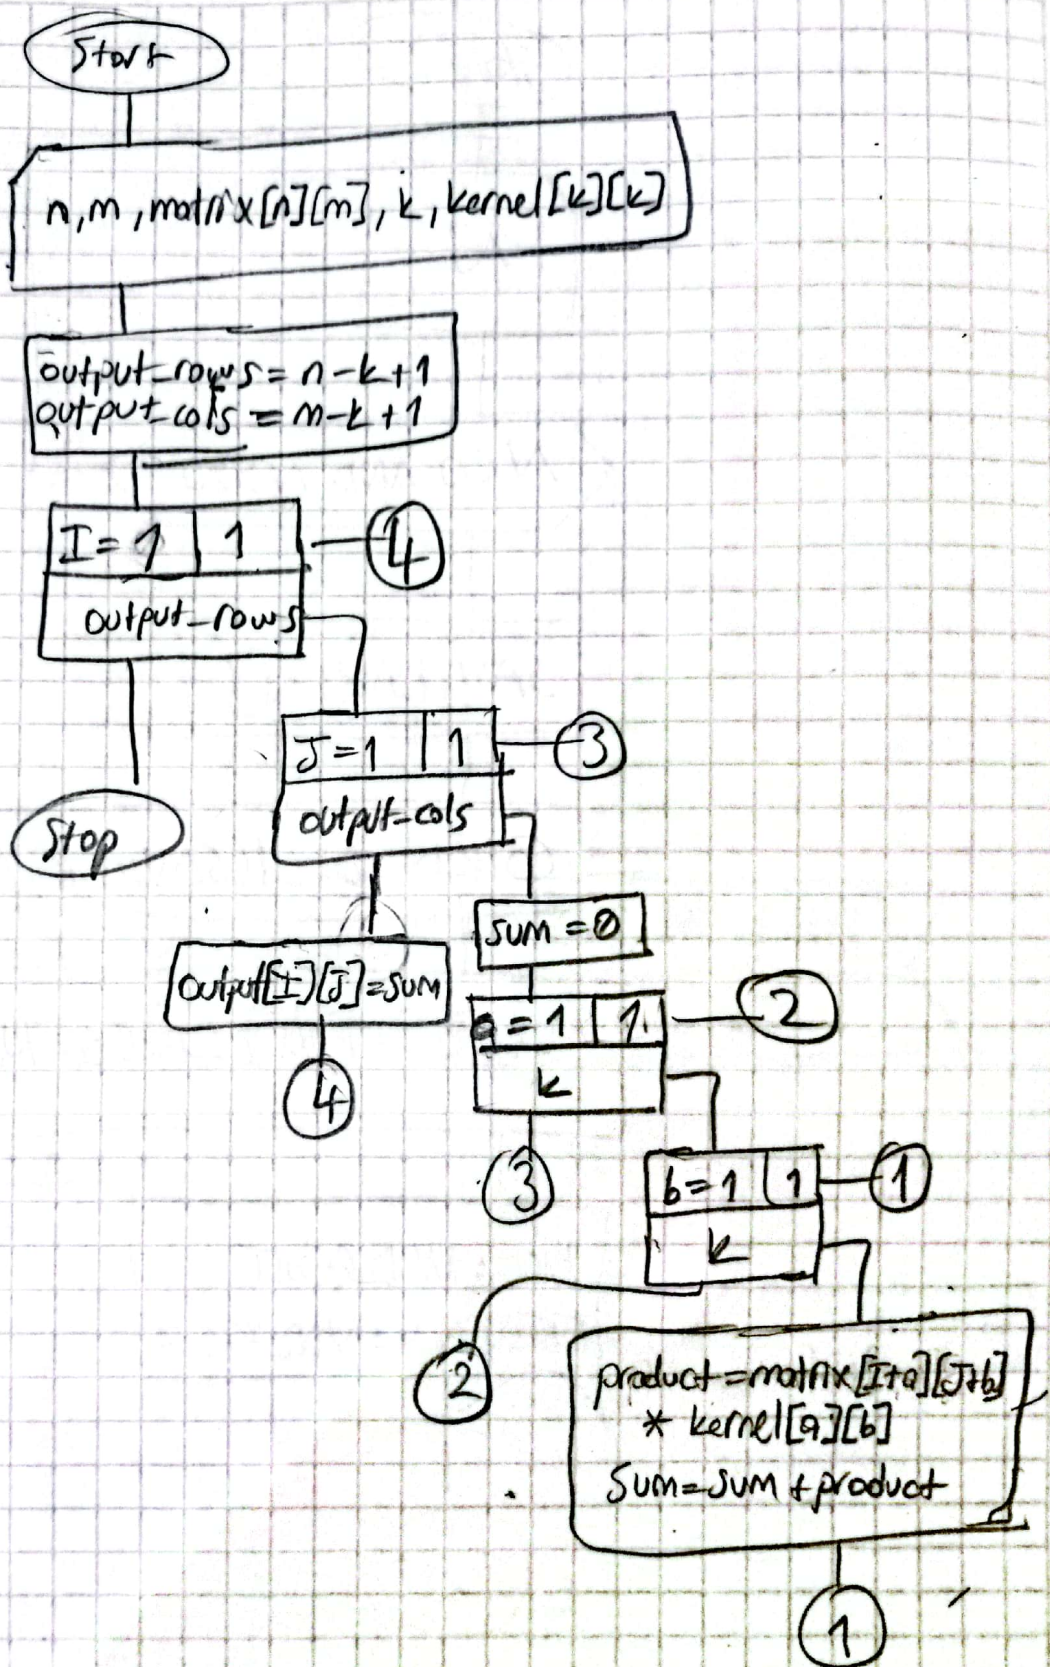 Start
n,m,matrix[n][m], k, kernel[k][k]
output_rows = n-k+1
output_cols = m-k+1
I=1 1
4
output_rows
J=1 1
3
output_cols
Stop
sum = 0
output[I][J]=sum
a=1 1
2
k
4
3
b=1 1
1
k
2
product=matrix[I+a][J+b]
* kernel[a][b]
Sum=sum+product
1